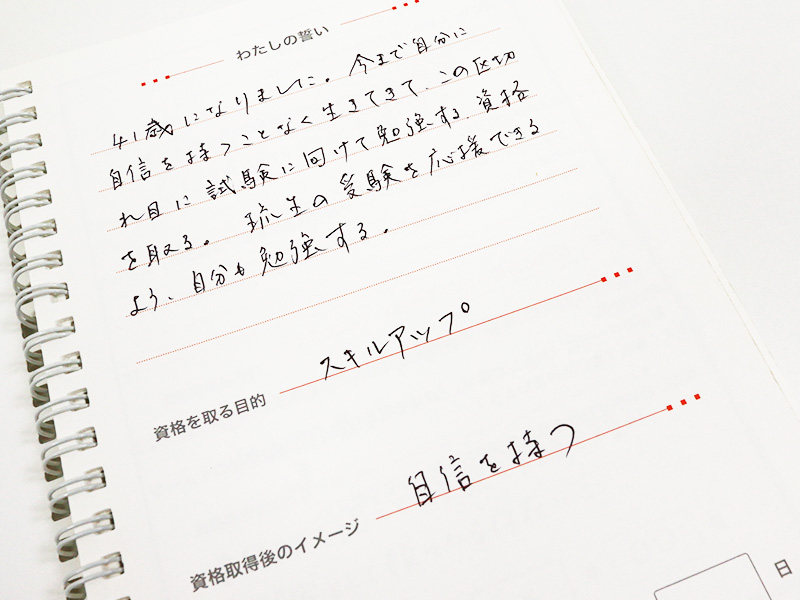 わたしの誓い
41歳になりました。今まで自分に
自信を持つことなく生きてきて、この区切
れ目に試験に向けて勉強する。資格
を取る。琉生の受験を応援できる
よう、自分も勉強する。
資格を取る目的 スキルアップ
資格取得後のイメージ 自信を持つ
日